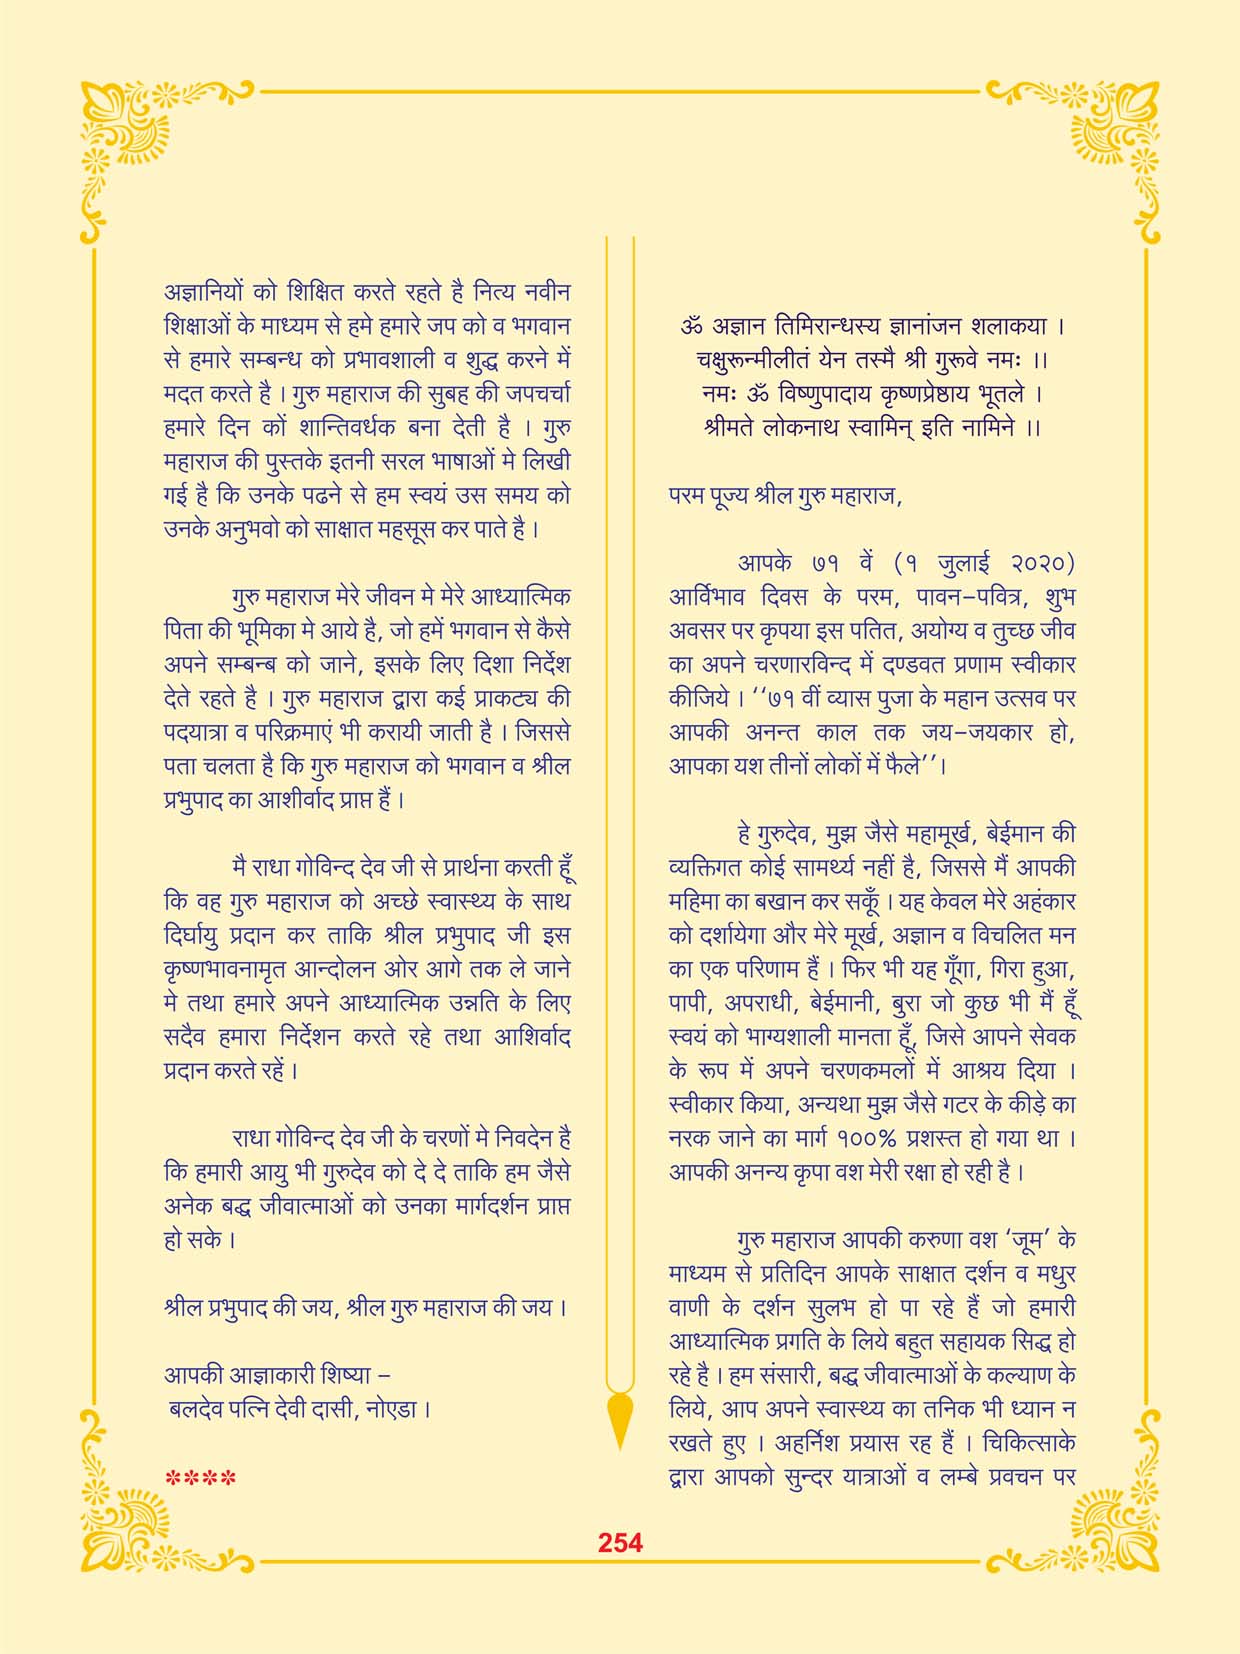 अज्ञानियों को शिक्षित करते रहते है नित्य नवीन
शिक्षाओं के माध्यम से हमे हमारे जप को व भगवान
से हमारे सम्बन्ध को प्रभावशाली व शुद्ध करने में
मदत करते है । गुरु महाराज की सुबह की जपचर्चा
हमारे दिन कों शान्तिवर्धक बना देती है । गुरु
महाराज की पुस्तके इतनी सरल भाषाओं मे लिखी
गई है कि उनके पढने से हम स्वयं उस समय को
उनके अनुभवो को साक्षात महसूस कर पाते है ।
गुरु महाराज मेरे जीवन मे मेरे आध्यात्मिक
पिता की भूमिका मे आये है, जो हमें भगवान से कैसे
अपने सम्बन्ब को जाने, इसके लिए दिशा निर्देश
देते रहते है । गुरु महाराज द्वारा कई प्राकट्य की
पदयात्रा व परिक्रमाएं भी करायी जाती है । जिससे
पता चलता है कि गुरु महाराज को भगवान व श्रील
प्रभुपाद का आशीर्वाद प्राप्त हैं ।
मै राधा गोविन्द देव जी से प्रार्थना करती हूँ
कि वह गुरु महाराज को अच्छे स्वास्थ्य के साथ
दिर्घायु प्रदान कर ताकि श्रील प्रभुपाद जी इस
कृष्णभावनामृत आन्दोलन ओर आगे तक ले जाने
मे तथा हमारे अपने आध्यात्मिक उन्नति के लिए
सदैव हमारा निर्देशन करते रहे तथा आशिर्वाद
प्रदान करते रहें ।
राधा गोविन्द देव जी के चरणों मे निवदेन है
कि हमारी आयु भी गुरुदेव को दे दे ताकि हम जैसे
अनेक बद्ध जीवात्माओं को उनका मार्गदर्शन प्राप्त
हो सके ।
श्रील प्रभुपाद की जय, श्रील गुरु महाराज की जय ।
आपकी आज्ञाकारी शिष्या –
बलदेव पत्नि देवी दासी, नोएडा ।
****
ॐ अज्ञान तिमिरान्धस्य ज्ञानांजन शलाकया ।
चक्षुरून्मीलीतं येन तस्मै श्री गुरूवे नमः ।।
नमः ॐ विष्णुपादाय कृष्णप्रेष्ठाय भूतले ।
श्रीमते लोकनाथ स्वामिन् इति नामिने ।।
परम पूज्य श्रील गुरु महाराज,
आपके ७१ वें (१ जुलाई २०२०)
आर्विभाव दिवस के परम, पावन–पवित्र, शुभ
अवसर पर कृपया इस पतित, अयोग्य व तुच्छ जीव
का अपने चरणारविन्द में दण्डवत प्रणाम स्वीकार
कीजिये । ‘‘७१ वीं व्यास पुजा के महान उत्सव पर
आपकी अनन्त काल तक जय–जयकार हो,
आपका यश तीनों लोकों में फैले’’।
हे गुरुदेव, मुझ जैसे महामूर्ख, बेईमान की
व्यक्तिगत कोई सामर्थ्य नहीं है, जिससे मैं आपकी
महिमा का बखान कर सकूँ । यह केवल मेरे अहंकार
को दर्शायेगा और मेरे मूर्ख, अज्ञान व विचलित मन
का एक परिणाम हैं । फिर भी यह गूँगा, गिरा हुआ,
पापी, अपराधी, बेईमानी, बुरा जो कुछ भी मैं हूँ
स्वयं को भाग्यशाली मानता हूँ, जिसे आपने सेवक
के रूप में अपने चरणकमलों में आश्रय दिया ।
स्वीकार किया, अन्यथा मुझ जैसे गटर के कीड़े का
नरक जाने का मार्ग १००% प्रशस्त हो गया था ।
आपकी अनन्य कृपा वश मेरी रक्षा हो रही है ।
गुरु महाराज आपकी करुणा वश ‘जूम’ के
माध्यम से प्रतिदिन आपके साक्षात दर्शन व मधुर
वाणी के दर्शन सुलभ हो पा रहे हैं जो हमारी
आध्यात्मिक प्रगति के लिये बहुत सहायक सिद्ध हो
रहे है । हम संसारी, बद्ध जीवात्माओं के कल्याण के
लिये, आप अपने स्वास्थ्य का तनिक भी ध्यान न
रखते हुए । अहर्निश प्रयास रह हैं । चिकित्साके
द्वारा आपको सुन्दर यात्राओं व लम्बे प्रवचन पर
254